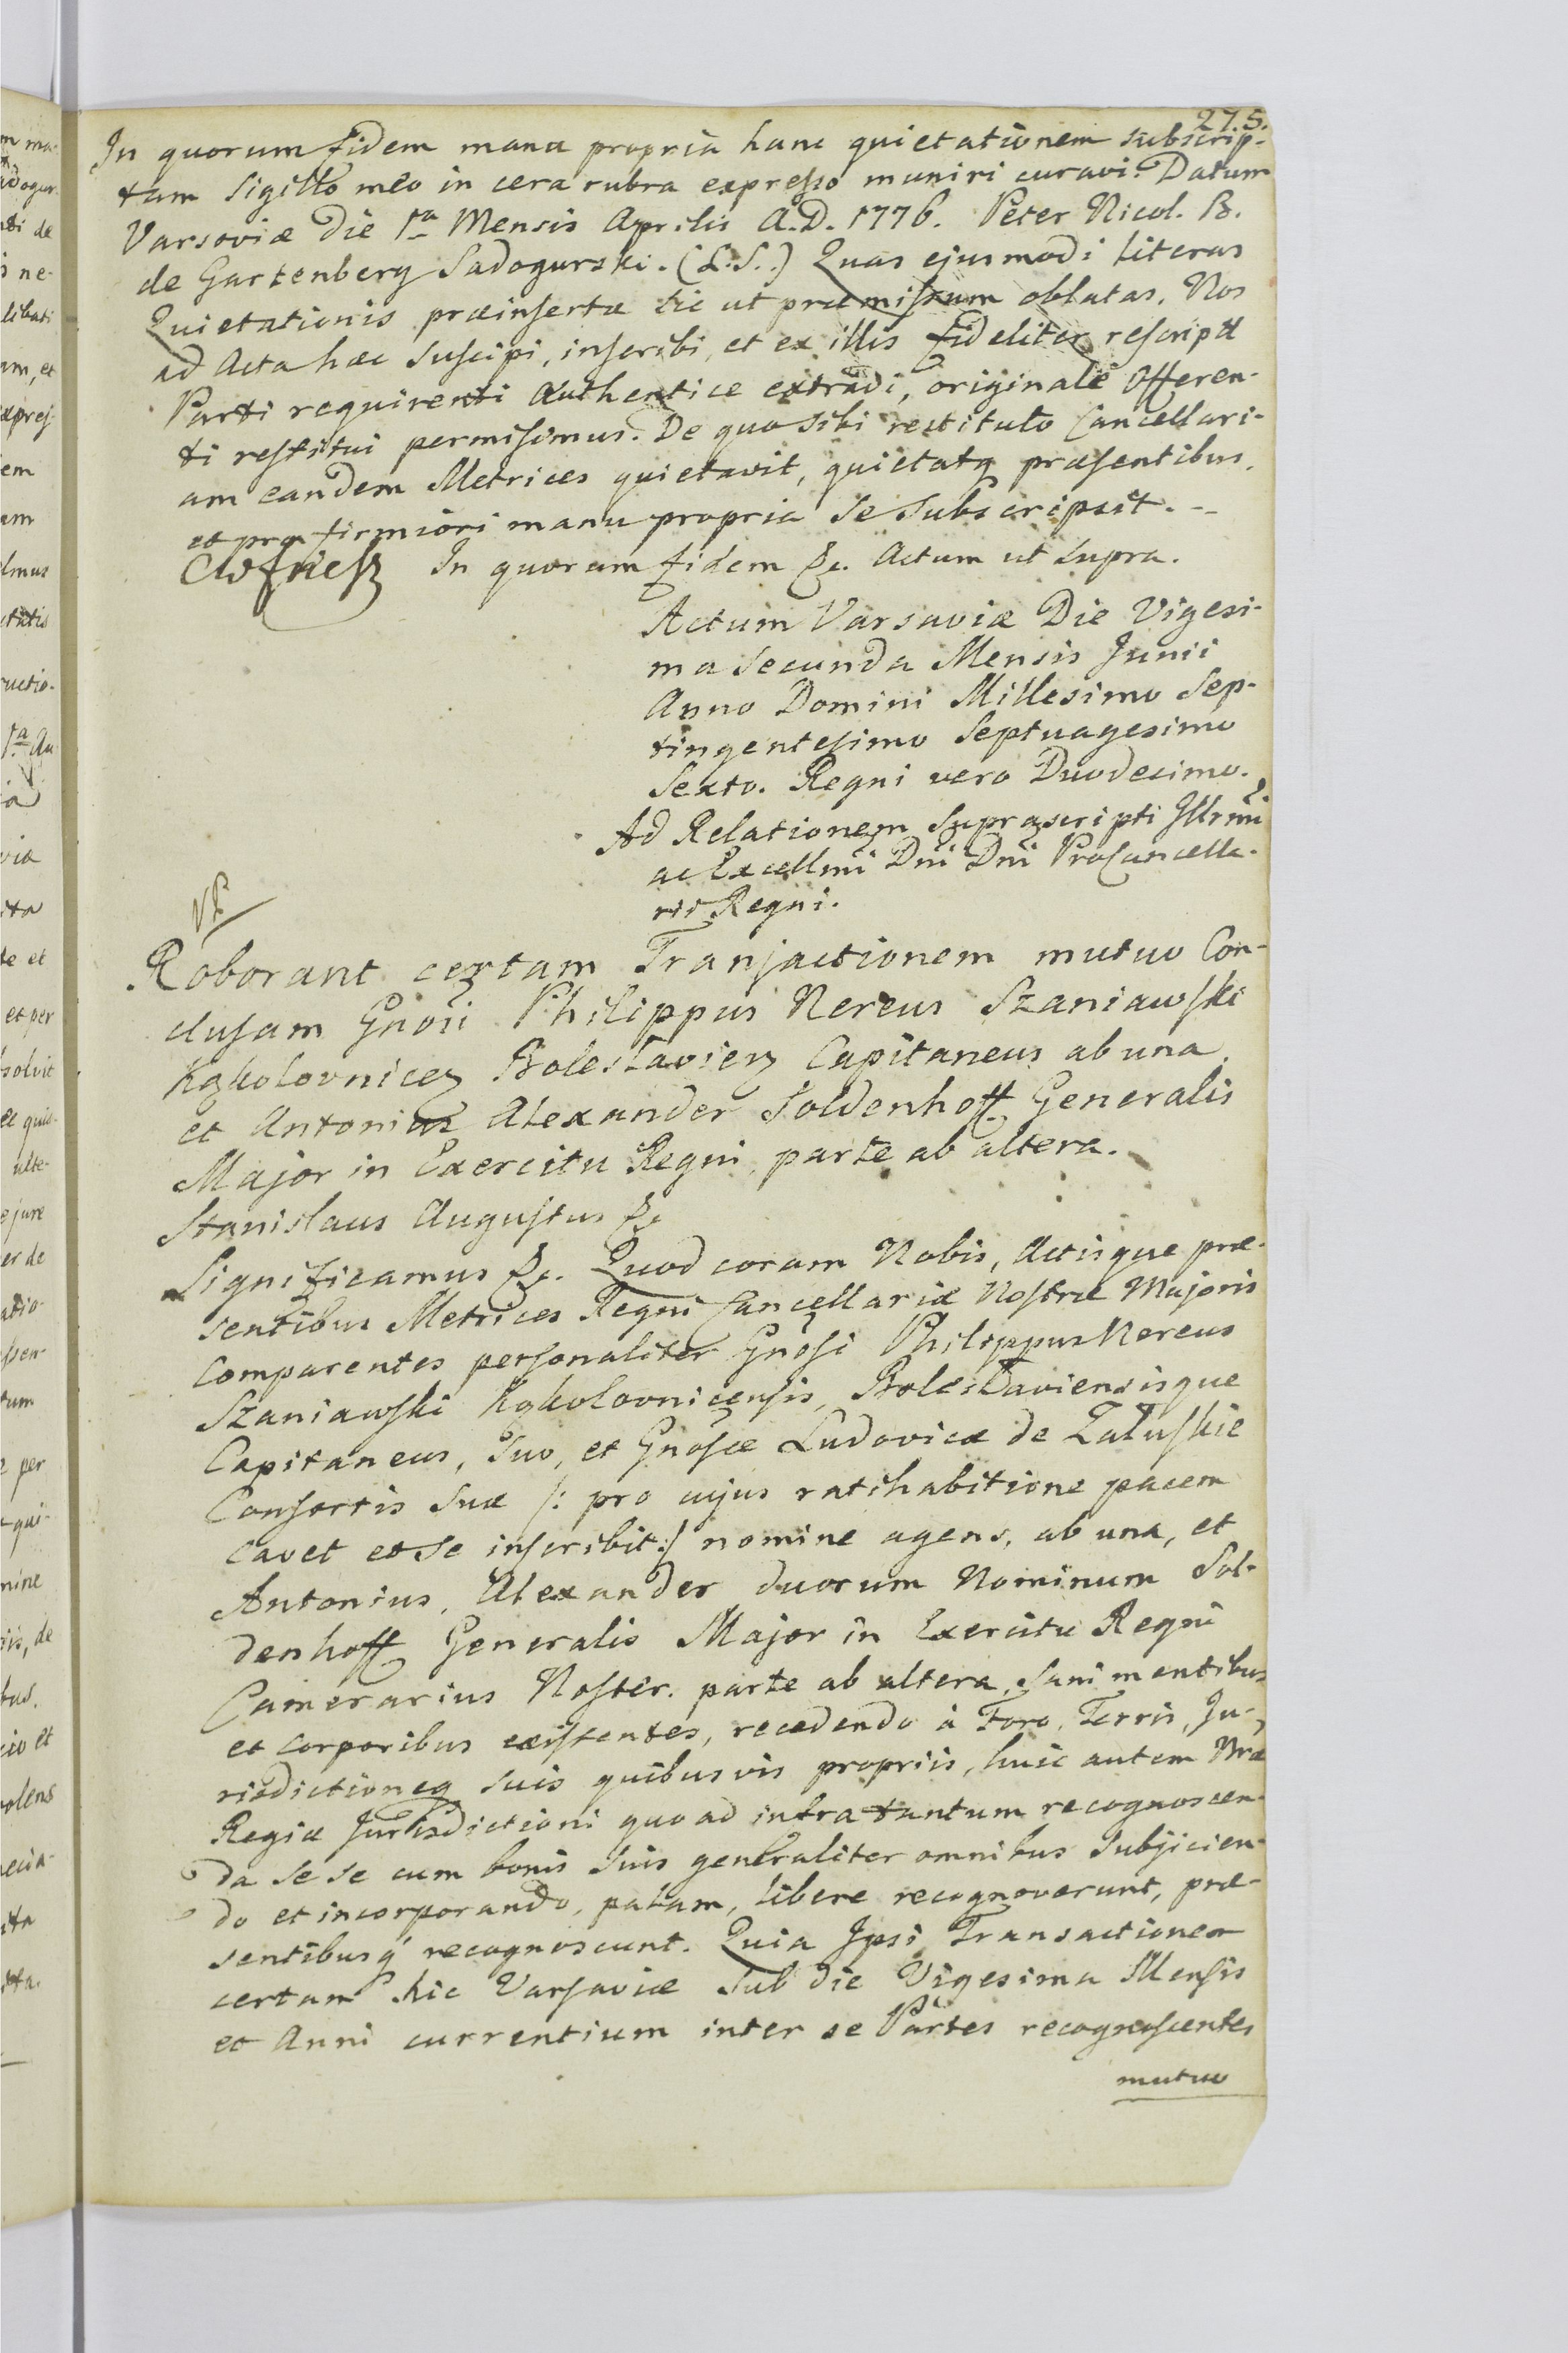 275.
In quorum fidem manu propria hanc quietationem subscrip-
tam Sigillo meo in cera rubra expresso muniri curavi. Datum
Varsoviæ Die 1ma Mensis Aprilis A.D. 1776. Peter Nicol. B.
de Gartenberg Sadogurski. (L.S.) Quas ejusmodi literas
Quietationis præinsertæ sic ut præmissum oblatas, Nos
ad Acta hæc suscipi, inscribi, et ex illis fideliter rescripta
Parti requirenti Authentice extradi, originale Offeren-
ti restitui permisimus. De quo sibi restituto Cancellari-
am eandem Metrices quietavit, quietatq præsentibus,
et pro firmiori manu propria se subscripsit. --
In quorum fidem &c. Actum ut supra.
Actum Varsaviæ Die Vigesi-
ma Secunda Mensis Junii
Anno Domini Millesimo Sep-
tingentesimo Septuagesimo
Sexto. Regni vero Duodecimo.
Ad Relationem supra scripti Illrmi
ac Excellmi Dni Dni ProCancella-
rii Regni.
Roborant certam Transactionem mutuo Con-
clusam Gnosi Philippus Nereus Szaniawski
Kąkolovnicen Boleslavien Capitaneus ab una,
et Antonius Alexander Soldenhoff Generalis
Major in Exercitu Regni, parte ab altera.
Stanislaus Augustus &c
Significamus &c. Quod coram Nobis, Actisque præ-
sentibus Metrices Regni Cancellariæ Nostræ Majoris
Comparentes personaliter Gnosi Philippus Nereus
Szaniawski Kąkolovnicensis, Boleslaviensisque
Capitaneus, Suo, et Gnosæ Ludovicæ de Załuskie
Consortis suæ /: pro cujus ratihabitione pacem
cavet et se inscribit :/ nomine agens, ab una, et
Antonius, Alexander duorum Nominum Sol-
denhoff Generalis Major in Exercitu Regni
Camerarius Noster. parte ab altera, sani mentibus
et corporibus existentes, recedendo à Foro, Terris, Ju-
risdictioneq suis quibusvis propriis, huic autem Nræ
Regiæ Jurisdictioni quoad infra tantum recognoscen-
da se se cum bonis suis generaliter omnibus subjicien-
do et incorporando, palam, libere recognoverunt, præ-
sentibusq recognoscunt. Quia Ipsi Transactionem
certam hic Varsaviæ sub die Vigesima Mensis
et Anni currentium inter se Partes recognoscentes
mutuo